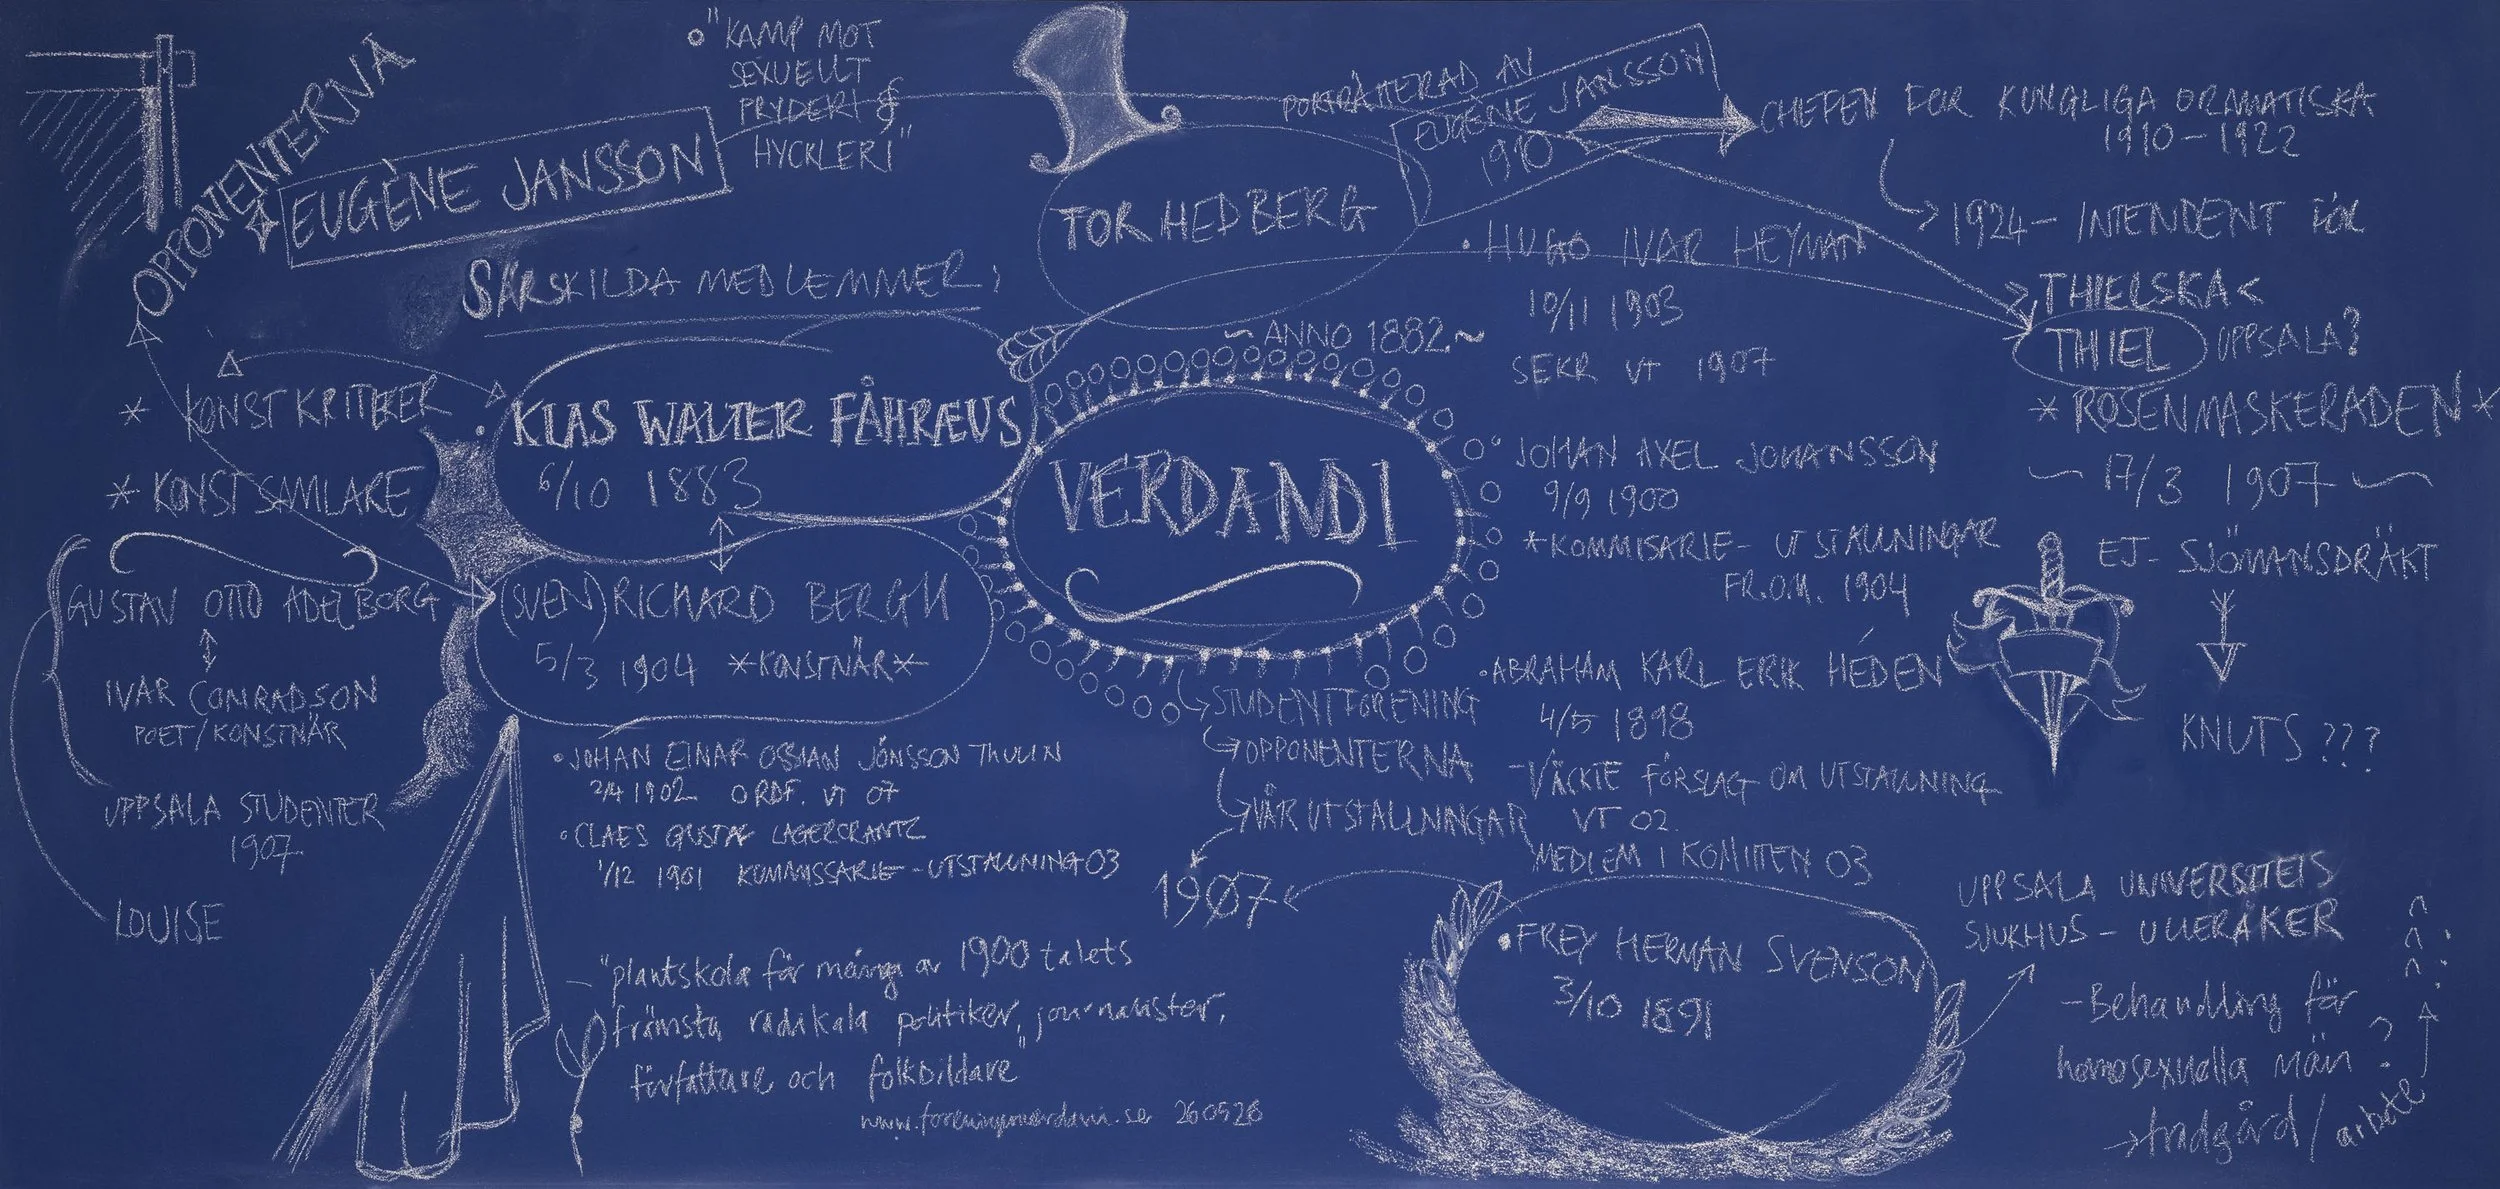 OPPONENTERNA
EUGÈNE JANSSON
"KAMP MOT
SEXUELLT
PRYDERI &
HYCKLERI"
SÄRSKILDA MEDLEMMER;
* KONSTKRITIKER
* KONSTSAMLARE
KLAS WALTER FÅHRÆUS
6/10 1883
GUSTAV OTTO ADELBORG
IVAR CONRADSON
POET/KONSTNÄR
UPPSALA STUDENTER
1907
LOUISE
(SVEN) RICHARD BERGH
5/3 1904 *KONSTNÄR*
• JOHAN EINAR OSSIAN JÖNSSON THULIN
2/4 1902 ORDF. VT 07
• CLAES GUSTAF LAGERCRANTZ
1/12 1901 KOMMISSARIE-UTSTÄLLNING 03
- "plantskola för många av 1900 talets
främsta radikala politiker, journalister,
författare och folkbildare"
260526
TOR HEDBERG
PORTRÄTTERAD AV
EUGÈNE JANSSON
1910
~ ANNO 1882 ~
VERDANDI
STUDENTFÖRENING
OPPONENTERNA
VÅR UTSTÄLLNINGAR
1907
• HUGO IVAR HEYMAN
10/11 1903
SEKR VT 1907
• JOHAN AXEL JOHANSSON
9/9 1900
*KOMMISARIE- UTSTÄLLNINGAR
FR.O.M. 1904
• ABRAHAM KARL ERIK HÉDEN
4/5 1898
- VÄCKTE FÖRSLAG OM UTSTÄLLNING
VT 02.
MEDLEM I KOMITTEN 03
• FREY HERMAN SVENSON
3/10 1891
CHEFEN FÖR KUNGLIGA DRAMATISKA
1910-1922
1924- INTENDENT FÖR
THIELSKA
THIEL UPPSALA?
* ROSENMASKERADEN *
~ 17/3 1907 ~
EJ- SJÖMANSDRÄKT
KNUTS ???
UPPSALA UNIVERSITETS
SJUKHUS - ULLERÅKER
- Behandling för
homosexuella män ?
→ trädgård/ arbete